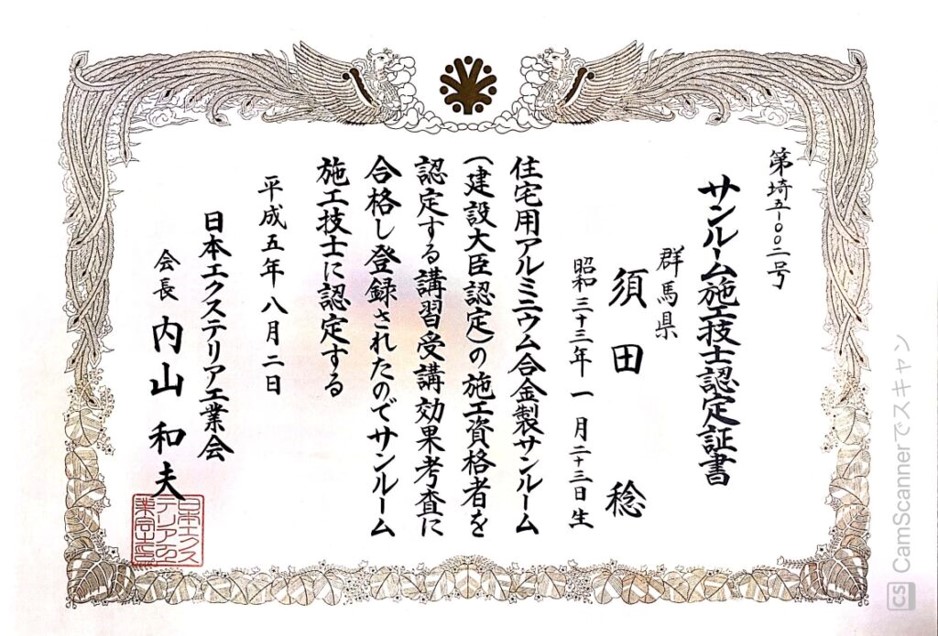 第埼五-〇〇二号
サンルーム施工技士認定証書
群馬県
須田 稔
昭和三十三年一月二十三日生
住宅用アルミニウム合金製サンルーム
(建設大臣認定)の施工資格者を
認定する講習受講効果考査に
合格し登録されたのでサンルーム
施工技士に認定する
平成五年八月二日
日本エクステリア工業会
会長 内山和夫
CS CamScannerでスキャン